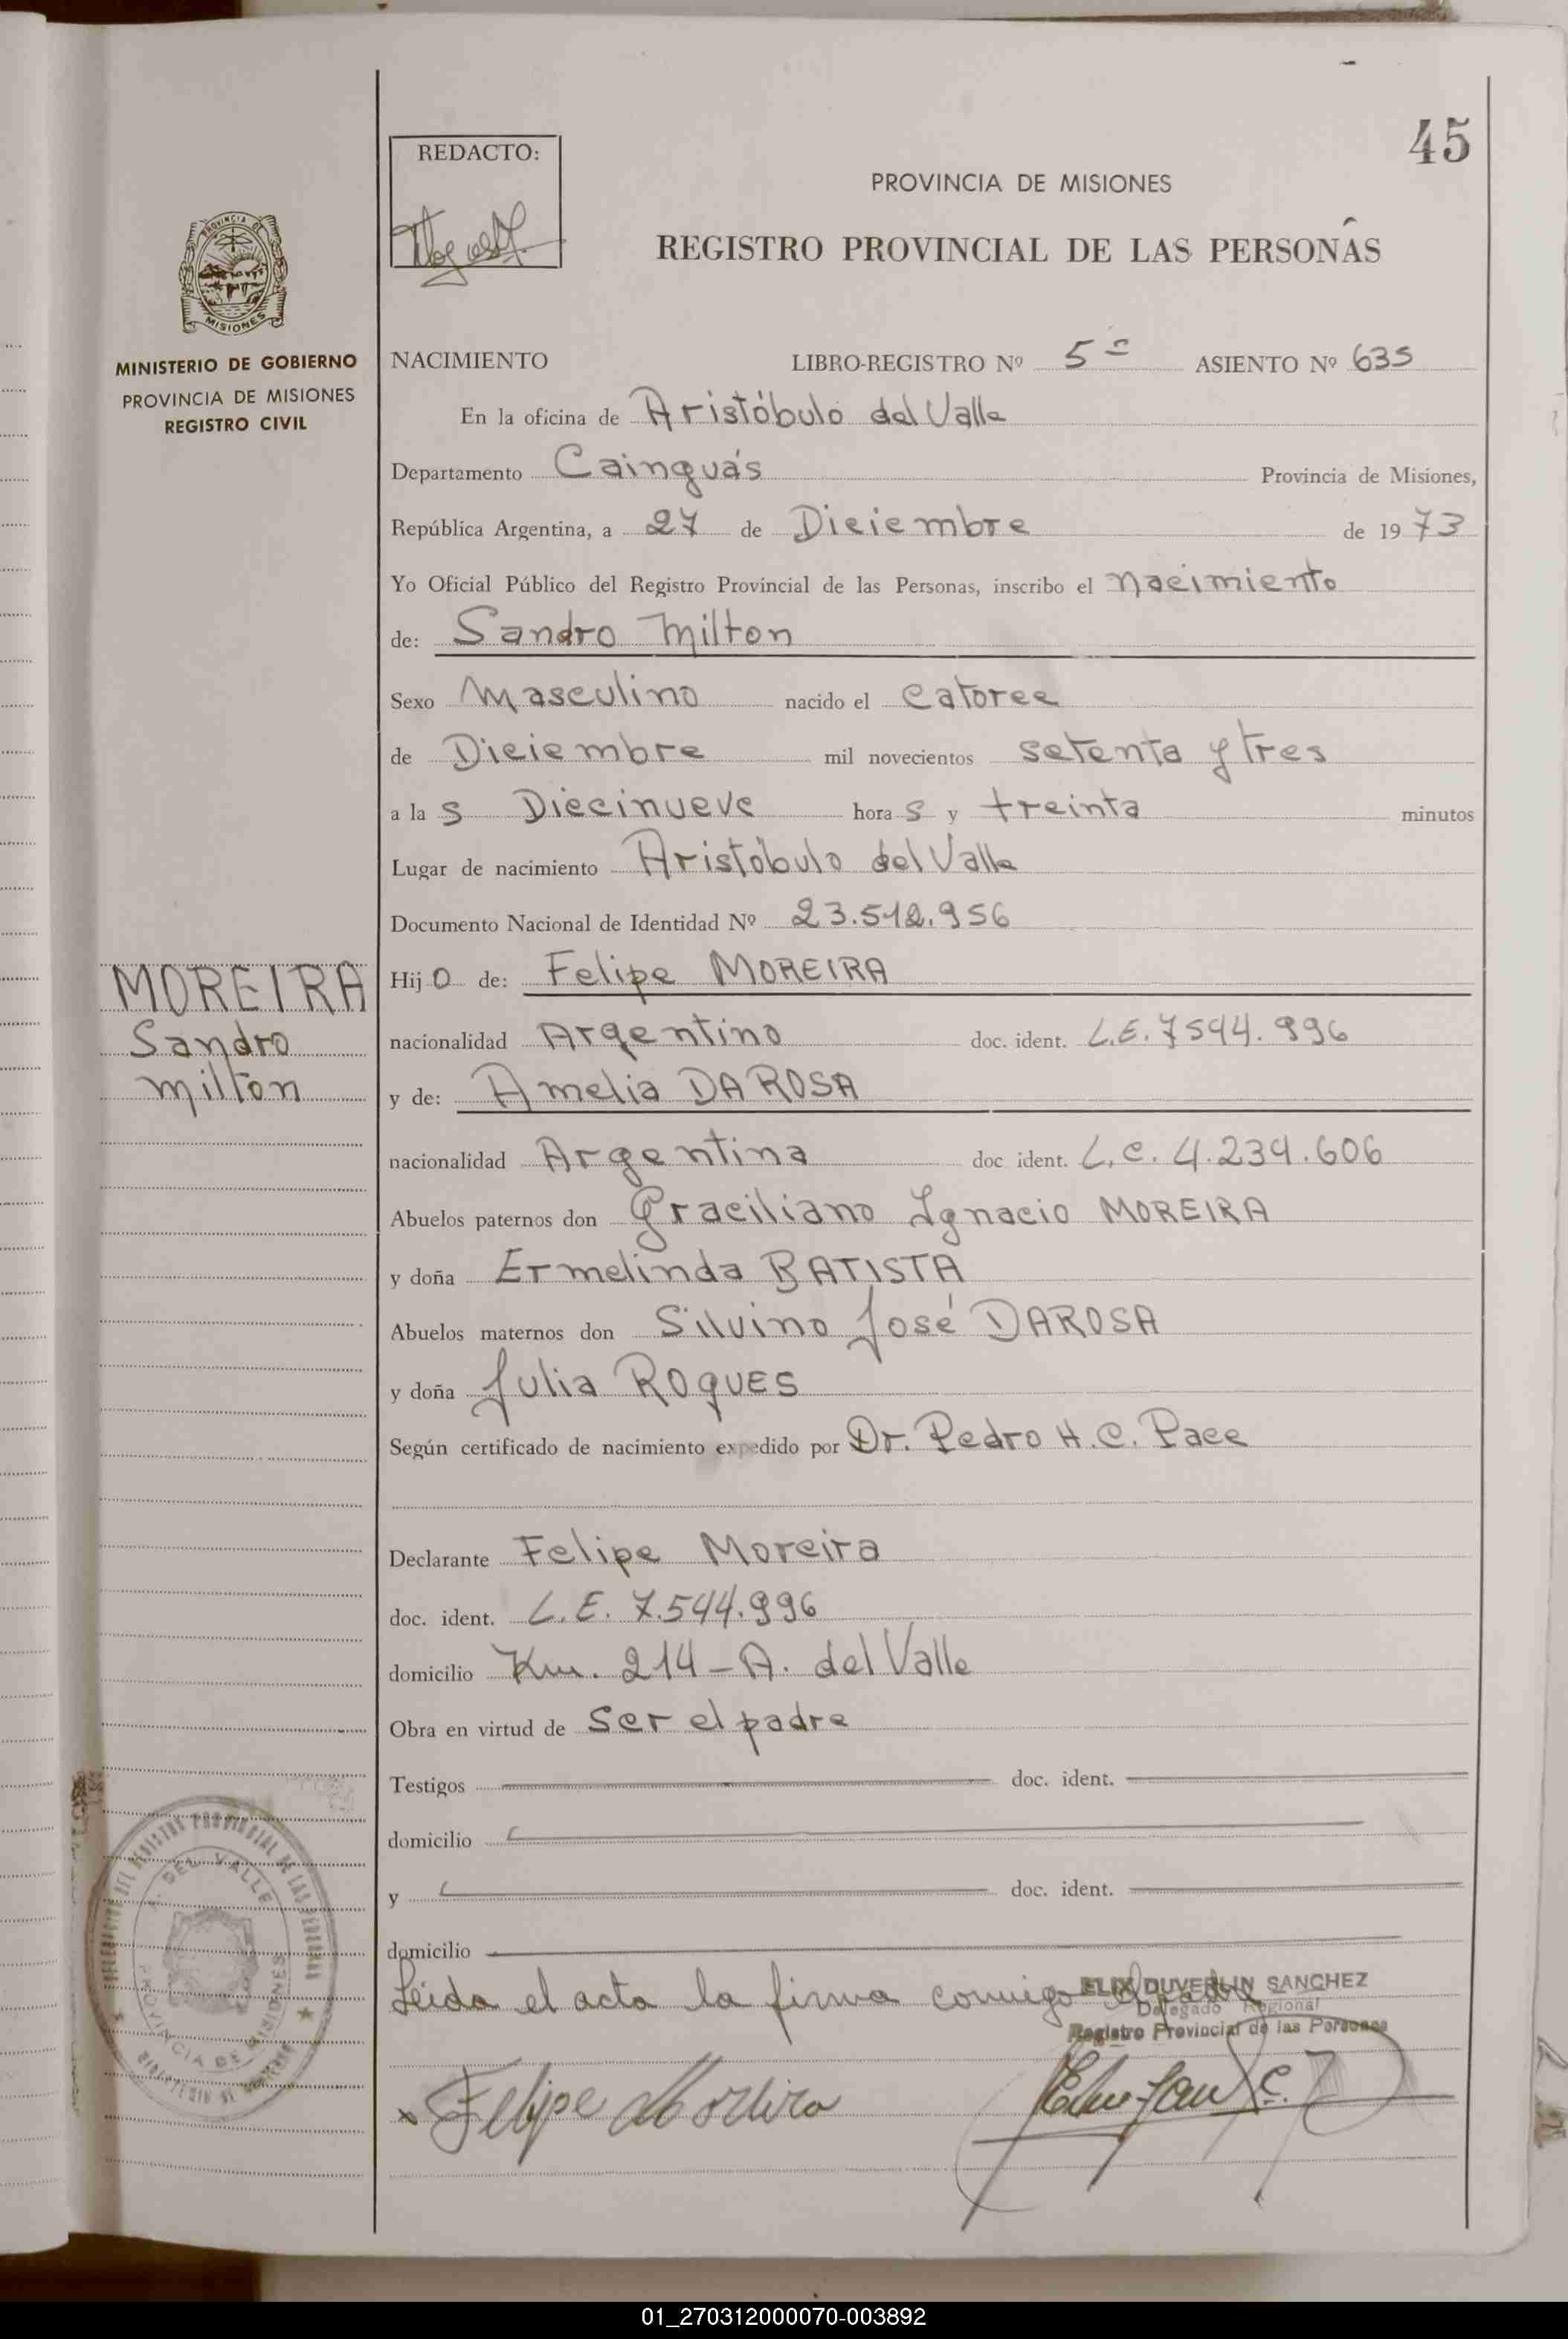 45
REDACTO:
PROVINCIA DE MISIONES
REGISTRO PROVINCIAL DE LAS PERSONAS
PROVINCIA DE
MISIONES
MINISTERIO DE GOBIERNO
PROVINCIA DE MISIONES
REGISTRO CIVIL
NACIMIENTO LIBRO-REGISTRO Nº 5º ASIENTO Nº 635
En la oficina de Aristóbulo del Valle
Departamento Cainguás Provincia de Misiones,
República Argentina, a 27 de Diciembre de 1973
Yo Oficial Público del Registro Provincial de las Personas, inscribo el nacimiento
de: Sandro Milton
Sexo Masculino nacido el Catorce
de Diciembre mil novecientos setenta y tres
a las Diecinueve horas y treinta minutos
Lugar de nacimiento Aristóbulo del Valle
Documento Nacional de Identidad Nº 23.512.956
MOREIRA
Sandro
Milton
Hijo de: Felipe MOREIRA
nacionalidad Argentino doc. ident. L.E. 7544.996
y de: Amelia DA ROSA
nacionalidad Argentina doc ident. L.C. 4.234.606
Abuelos paternos don Graciliano Ignacio MOREIRA
y doña Ermelinda BATISTA
Abuelos maternos don Silvino José DAROSA
y doña Julia ROQUES
Según certificado de nacimiento expedido por Dr. Pedro H. C. Pace
Declarante Felipe Moreira
doc. ident. L.E. 7.544.996
domicilio Km. 214 - A. del Valle
Obra en virtud de ser el padre
Testigos doc. ident.
domicilio
y doc. ident.
domicilio
Leida el acta la firma conmigo el padre
ELIX DUVERLIN SANCHEZ
Delegado Regional
Registro Provincial de las Personas
DEL REGISTRO PROVINCIAL DE LAS PERSONAS
A. DEL VALLE
PROVINCIA DE MISIONES
Felipe Moreira
01_270312000070-003892